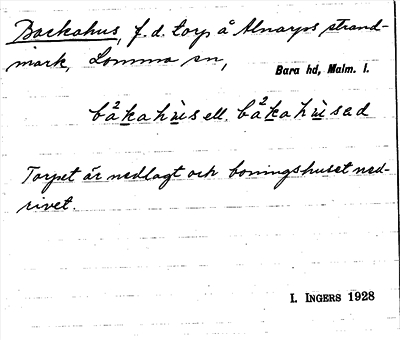 Backahus, f.d. torp å Alnarps strand-
mark, Lomma sn,
Bara hd, Malm. l.
bå²kahùs ell. bå²kahùsəd
Torpet är nedlagt och boningshuset ned-
rivet.
I. INGERS 1928